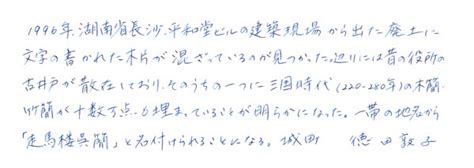 1996年、湖南省長沙、平和堂ビルの建築現場から出た廃土に
文字の書かれた木片が混ざっているのが見つかった。辺りには昔の役所の
古井戸が散在しており、そのうちの一つに三国時代(220-280年)の木簡・
竹簡が十数万点も埋まっていることが明らかになった。一帯の地名から
「走馬楼呉簡」と名付けられることになる。 城町 徳田敦子